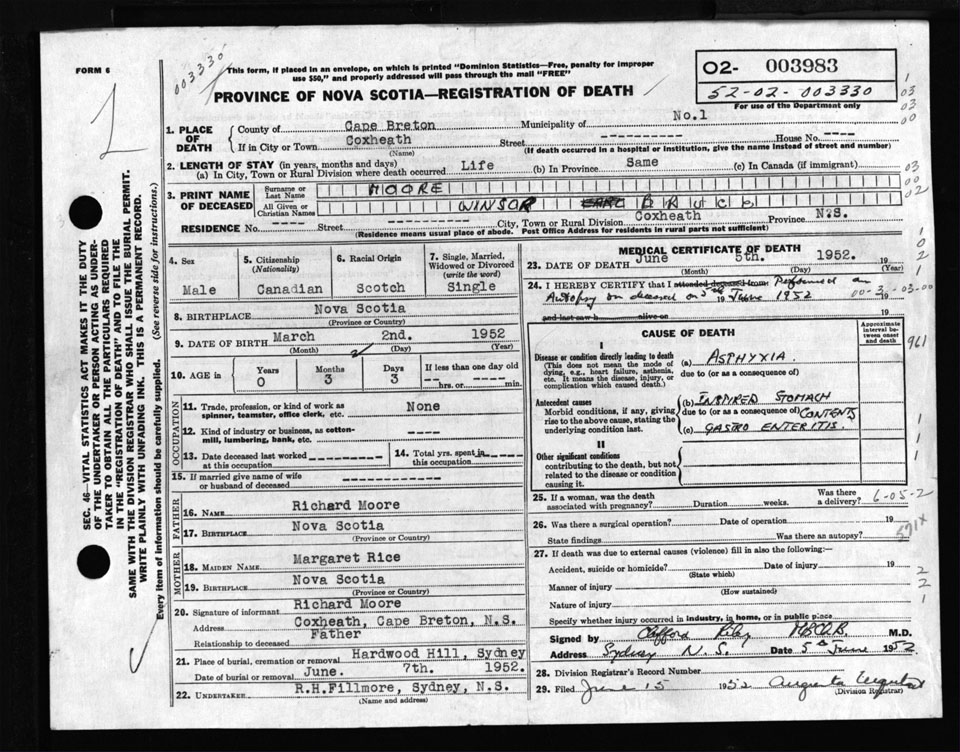 FORM 6
003330
This form, if placed in an envelope, on which is printed "Dominion Statistics—Free, penalty for improper
use $50," and properly addressed will pass through the mail "FREE"
PROVINCE OF NOVA SCOTIA—REGISTRATION OF DEATH
O2- 003983
52-02-003330
For use of the Department only
1. PLACE OF DEATH
County of Cape Breton Municipality of No.1
If in City or Town Coxheath Street ---------- House No. ----
(Name) (If death occurred in a hospital or institution, give the name instead of street and number)
2. LENGTH OF STAY (in years, months and days)
(a) In City, Town or Rural Division where death occurred Life (b) In Province Same (c) In Canada (if immigrant)
3. PRINT NAME OF DECEASED
Surname or Last Name MOORE
All Given or Christian Names WINSOR
RESIDENCE No. ---- Street ---------- City, Town or Rural Division Coxheath Province N.S.
(Residence means usual place of abode. Post Office Address for residents in rural parts not sufficient)
4. Sex
Male
5. Citizenship
(Nationality)
Canadian
6. Racial Origin
Scotch
7. Single, Married,
Widowed or Divorced
(write the word)
Single
8. BIRTHPLACE Nova Scotia
(Province or Country)
9. DATE OF BIRTH March 2nd. 1952
(Month) (Day) (Year)
10. AGE in
Years Months Days If less than one day old
0 3 3 ---- hrs. or ---- min.
OCCUPATION
11. Trade, profession, or kind of work as
spinner, teamster, office clerk, etc. None
12. Kind of industry or business, as cotton-
mill, lumbering, bank, etc. ----
13. Date deceased last worked
at this occupation ----------
14. Total yrs. spent in
this occupation ----
15. If married give name of wife
or husband of deceased ----------
FATHER
16. NAME Richard Moore
17. BIRTHPLACE Nova Scotia
(Province or Country)
MOTHER
18. MAIDEN NAME Margaret Rice
19. BIRTHPLACE Nova Scotia
(Province or Country)
20. Signature of informant Richard Moore
Address Coxheath, Cape Breton, N.S.
Relationship to deceased Father
21. Place of burial, cremation or removal Hardwood Hill, Sydney
Date of burial or removal June. 7th. 1952.
22. UNDERTAKER R.H.Fillmore, Sydney, N.S.
(Name and address)
MEDICAL CERTIFICATE OF DEATH
23. DATE OF DEATH June 5th. 1952. 19
(Month) (Day) (Year)
24. I HEREBY CERTIFY that I attended deceased from Performed an
Autopsy on deceased on 5th June 1952
19
and last saw h alive on 19
00-3-03-00
CAUSE OF DEATH
Approximate
interval be-
tween onset
and death
I
Disease or condition directly leading to death
(This does not mean the mode of
dying, e.g., heart failure, asthenia,
etc. It means the disease, injury, or
complication which caused death.)
(a) ASPHYXIA.
due to (or as a consequence of)
Antecedent causes
Morbid conditions, if any, giving
rise to the above cause, stating the
underlying condition last.
(b) INSPIRED STOMACH
due to (or as a consequence of) CONTENTS
(c) GASTRO ENTERITIS.
II
Other significant conditions
contributing to the death, but not
related to the disease or condition
causing it.
961
25. If a woman, was the death
associated with pregnancy? Duration weeks. Was there
a delivery? 6-05-2
26. Was there a surgical operation? Date of operation 19
State findings Was there an autopsy? 571X
27. If death was due to external causes (violence) fill in also the following:—
Accident, suicide or homicide? Date of injury 19
(State which)
Manner of injury
(How sustained)
Nature of injury
Specify whether injury occurred in industry, in home, or in public place
Signed by Clifford M.D.
Address Sydney N.S. Date 5th June 1952
28. Division Registrar's Record Number
29. Filed June 15 1952
(Division Registrar)
SEC. 46—VITAL STATISTICS ACT MAKES IT THE DUTY
OF THE UNDERTAKER OR PERSON ACTING AS UNDER-
TAKER TO OBTAIN ALL THE PARTICULARS REQUIRED
IN THE "REGISTRATION OF DEATH" AND TO FILE THE
SAME WITH THE DIVISION REGISTRAR WHO SHALL ISSUE THE BURIAL PERMIT.
WRITE PLAINLY WITH UNFADING INK. THIS IS A PERMANENT RECORD.
Every item of information should be carefully supplied. (See reverse side for instructions.)